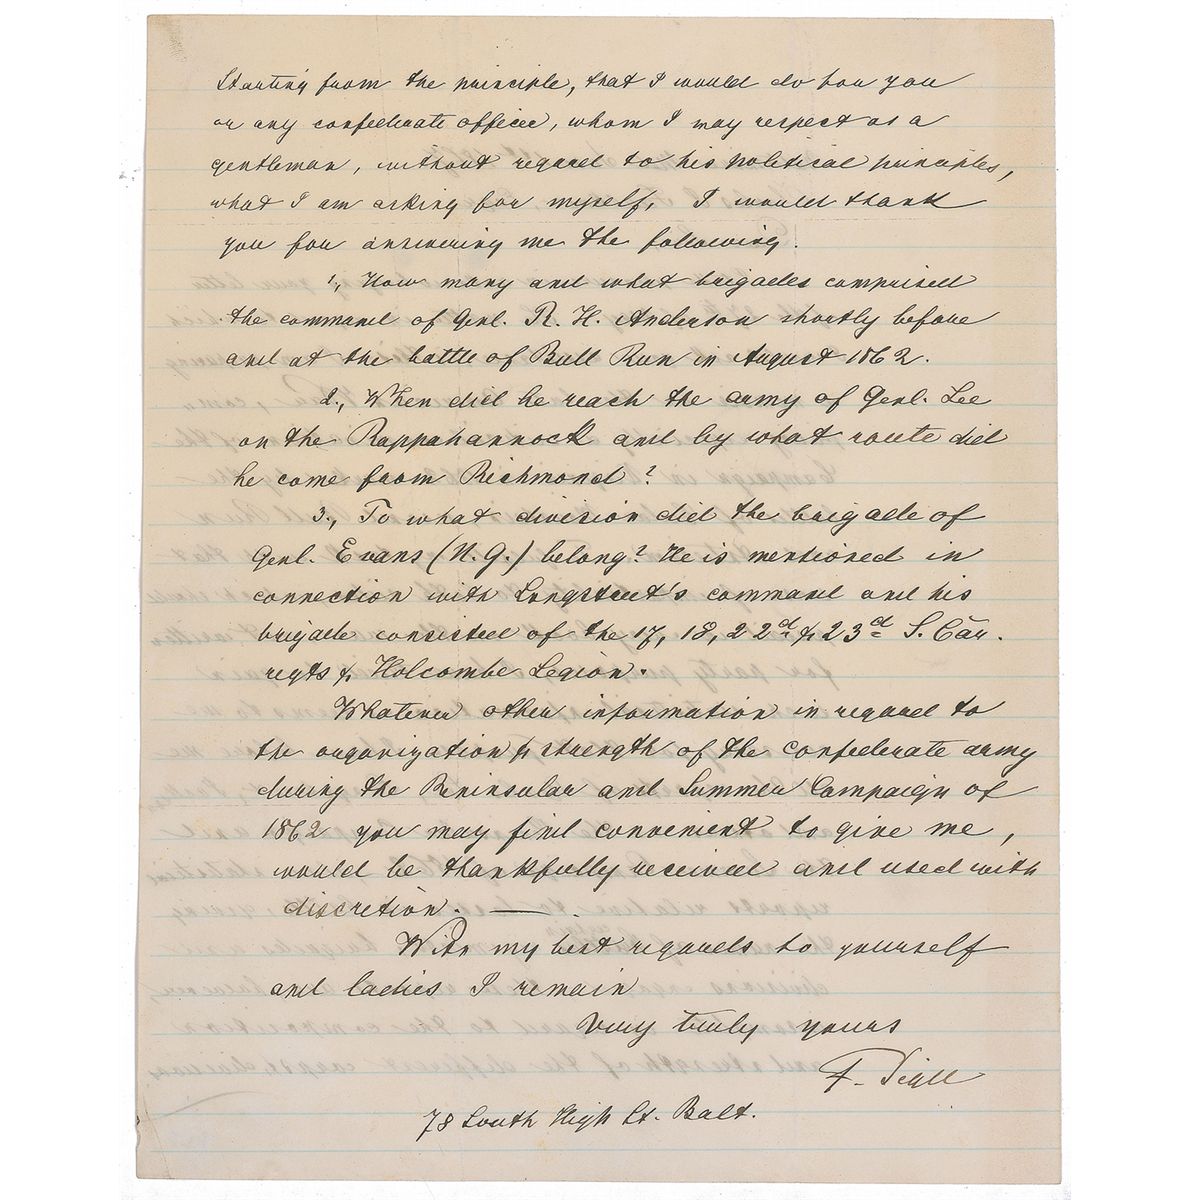 Starting from the principle, that I would do for you
or any confederate officer, whom I may respect as a
gentleman, without regard to his political principles,
what I am asking for myself, I would thank
you for answering me the following.
1., How many and what brigades comprised
the command of Genl. R. H. Anderson shortly before
and at the battle of Bull Run in August 1862.
2., When did he reach the army of Genl. Lee
on the Rappahannock and by what route did
he come from Richmond?
3., To what division did the brigade of
Genl. Evans (N. G.) belong? He is mentioned in
connection with Longstreet's command and his
brigade consisted of the 17, 18, 22d & 23d S. Car.
regts & Holcombe Legion.
Whatever other information in regard to
the organization & strength of the confederate army
during the Peninsular and Summer Campaign of
1862 you may find convenient to give me,
would be thankfully received and used with
discretion. —
With my best regards to yourself
and ladies I remain
Very truly yours
F. Sigel
78 South High St. Balt.